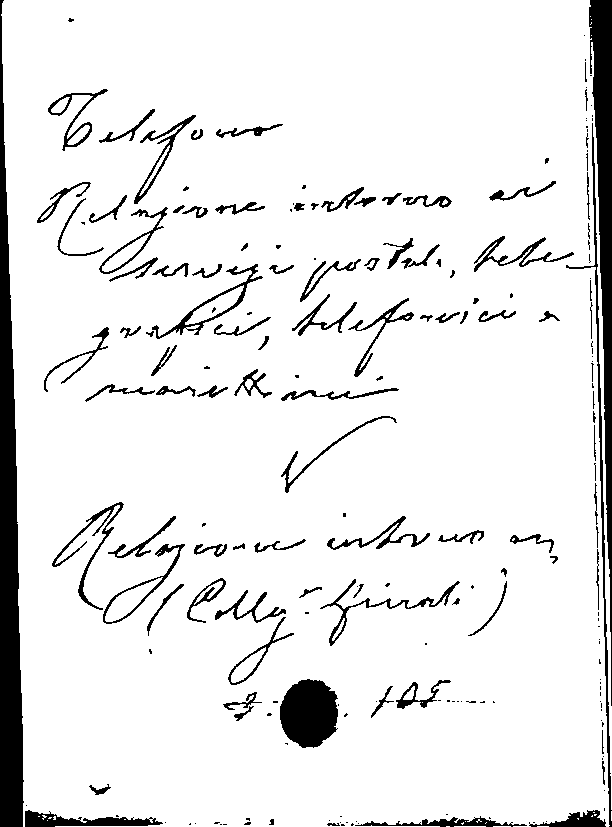 Telefono
Relazione intorno ai
servizi postali, tele-
grafici, telefonici e
marittimi
V
Relazione intorno
(Coll.
105